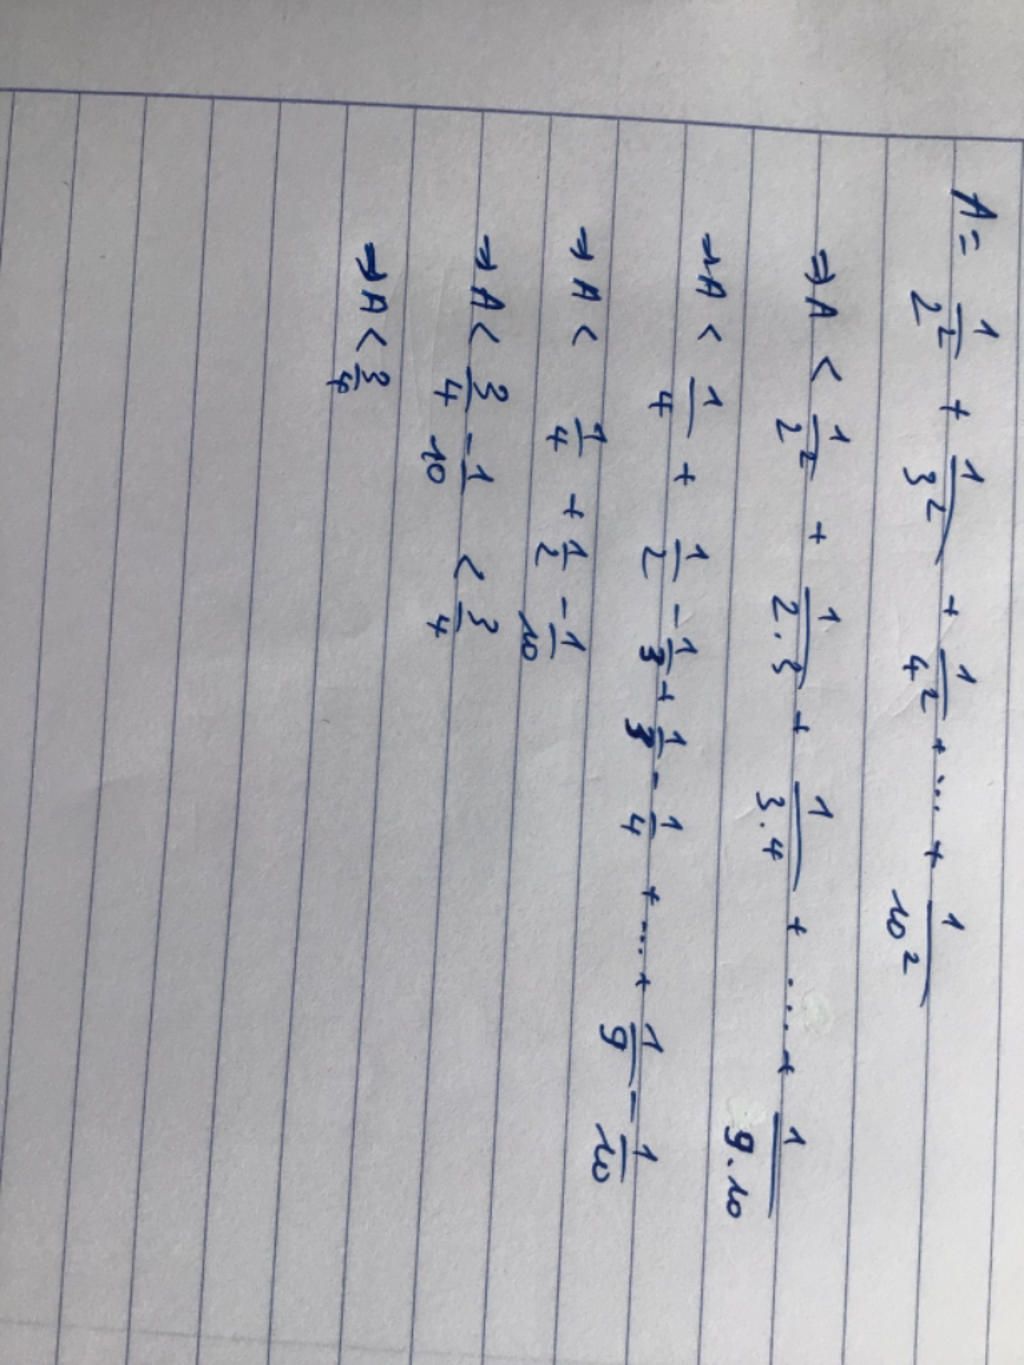 A = 1/2² + 1/3² + 1/4² + ... + 1/10²
⇒ A < 1/2² + 1/2.3 + 1/3.4 + .... + 1/9.10
⇒ A < 1/4 + 1/2 - 1/3 + 1/3 - 1/4 + .... + 1/9 - 1/10
⇒ A < 1/4 + 1/2 - 1/10
⇒ A < 3/4 - 1/10 < 3/4
⇒ A < 3/4